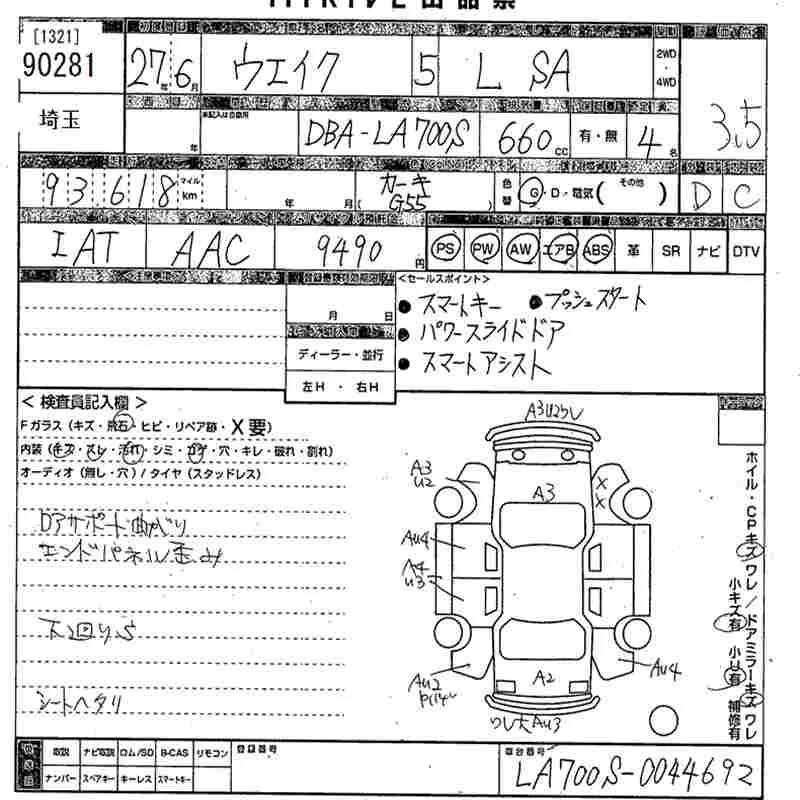 [1321]
90281
27年 6月 ウエイク 5 L SA 2WD・4WD
3.5
埼玉
年 未記入は自家用 DBA-LA700S 660cc 有・無 4名
93,618 マイル km 年 月( カーキ G55 ) 色替 G・D・電気( その他 ) D C
IAT AAC 9490円 PS PW AW エアB ABS 革 SR ナビ DTV
<セールスポイント>
月 日
● スマートキー ● プッシュスタート
● パワースライドドア
ディーラー・並行
● スマートアシスト
左H・右H
<検査員記入欄>
Fガラス(キズ・飛石・ヒビ・リペア跡・X要)
内装(キズ・スレ・汚れ・シミ・コゲ・穴・キレ・破れ・割れ)
オーディオ(無し・穴)/タイヤ(スタッドレス)
Dアサポート曲がり
エンドパネル歪み
下回りS
シートヘタリ
A3U2ワレ
A3
U2
A3
X
X
AU4
A4
U3
AU2
A2
AU4
ワレ大AU3
ホイル・CPキズワレ/ドアミラーキズワレ
小キズ有 小U有 補修有
取説 ナビ取説 ロム/SD B-CAS リモコン 登録番号 車台番号
ナンバー スペアキー キーレス スマートキー
LA700S-0044692